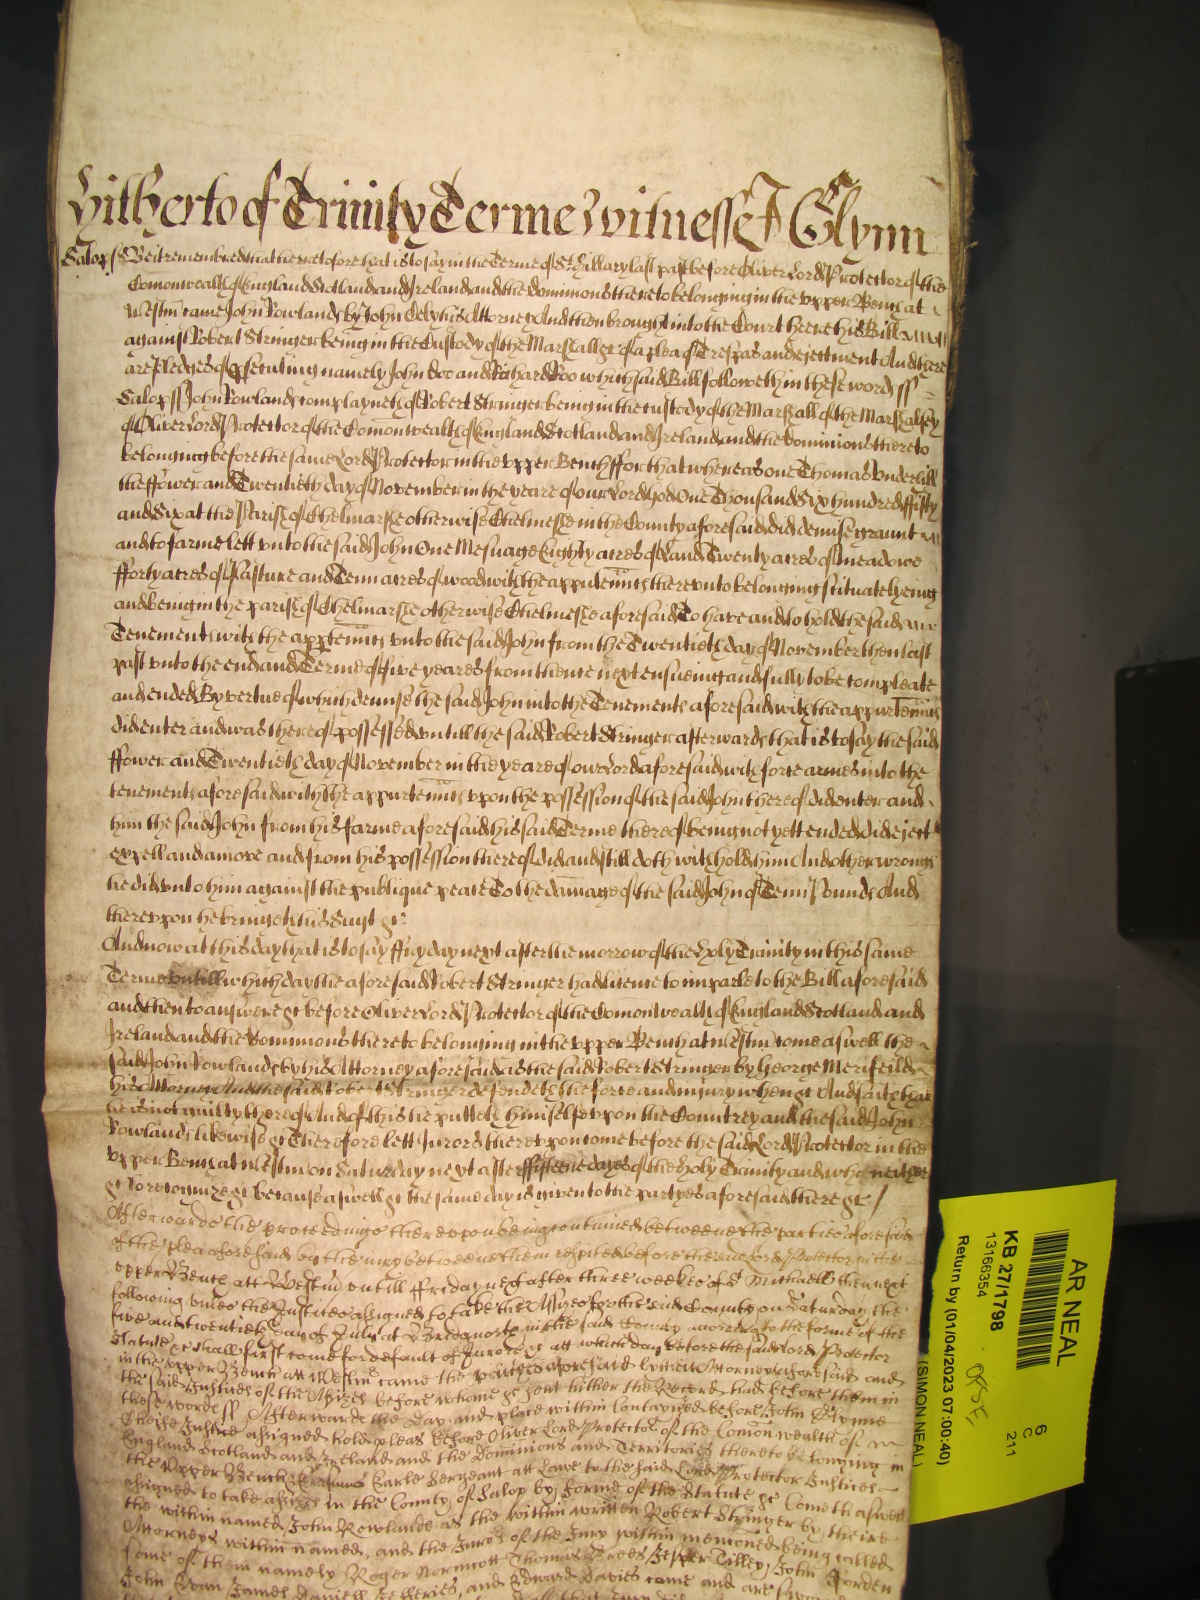 Hitherto of Trinity Terme Witnesse J Glynn
Salop ss Be it remembred that heretofore that is to say in the Terme of St Hillary last past before Oliver Lord Protector of the
Comonwealth of England Scotland and Ireland and the Dominions thereto belonging in the upper Bench at
Westm came John Rowlands by John his Attorney And then brought into the Court heere his Bill
against Robert Stringer being in the Custody of the Marshall &c of a plea of Trespas and ejectment And there
are Pledges of psecuting namely John Doe and Richard Roo which said Bill followeth in these words ss
Salop ss John Rowlands complayneth of Robert Stringer being in the custody of the Marshall of the Marshalsey
of Oliver Lord Protector of the Comonwealth of England Scotland and Ireland and the Dominions thereto
belonging before the same Lord Protector in the upper Bench ffor that whereas one Thomas Underhill
the ffower and Twentieth day of November in the yeare of our Lord God One Thousand Six hundred ffifty
and Six at the Parish of Chelmarshe otherwise in the County aforesaid did demise graunt
and to farme lett unto the said John One Mesuage Eighty acres of Land Twenty acres of meadowe
fforty acres of Pasture and Tenn acres of wood with the appurtenncs thereunto belonging situate lyeing
and being in the parish of Chelmarshe otherwise aforesaid To have and to hold the said
Tenements with the appurtenncs unto the said John from the Twentieth day of November then last
past unto the end and Terme of five yeares from thence next ensueing and fully to be compleate
and ended By vertue of which demise the said John into the Tenements aforesaid with the appurtenncs
did enter and was thereof possessed untill the said Robert Stringer afterwards that is to say the said
ffower and Twentieth day of November in the yeare of our Lord aforesaid with force armes into the
tenements aforesaid with the appurtenncs upon the possession of the said John thereof did enter and
him the said John from his farme aforesaid his said Terme thereof being not yett ended did eject
expell and amove and from his possession thereof did and still doth withhold him And other wrongs
he did unto him against the publique peace To the damage of the said John of Tenn Pounds And
thereupon he bringeth his Suyt &c
And now at this day that is to say ffryday next after the morrow of the Holy Trinity in this same
Terme untill which day the aforesaid Robert Stringer had licence to imparle to the Bill aforesaid
and then to answere &c before Oliver Lord Protector of the Comonwealth of England Scotland and
Ireland and the Dominions thereto belonging in the upper Bench at Westm come aswell the
said John Rowlands by his Attorney aforesaid as the said Robert Stringer by George Merifeild
his Attorney And the said Robert Stringer defendeth the force and injury when &c And saith that
he is not guilty thereof And of this he putteth himselfe upon the Countrey and the said John
Rowlands likewise &c Therefore lett Jurors thereupon come before the said Lord Protector in the
upper Bench at Westm on Saturday next after ffifteene dayes of the Holy Trinity and who neither
&c to recognize &c because aswell &c the same day is given to the partyes aforesaid there &c /
Afterwards the proceedings thereupon being continued betweene the parties aforesaid
of the plea aforesaid by the Jury betweene them respited before the said Lord Protector in the
upper Bench att Westm untill ffriday next after three weekes of St Michaell then next
following unles the Justices assigned to take the Assizes for the said County on Saturday the
five and twentieth day of July at Bridgnorth in the said County according to the forme of the
Statute &c shall first come for default of Jurors &c att which day before the said Lord Protector
in the upper Bench att Westm came the parties aforesaid by their Attorneys aforesaid and
the said Justices of the Assizes before whome &c sent hither the Record had before them in
these words ss Afterwards the day and place within contayned before John Glynne
Cheife Justice assigned hold pleas before Oliver Lord Protector of the Comonwealth of
England Scotland and Ireland and the Dominions and Territories thereto belonging in
the Upper Bench Erasmus Earle Sergeant att Lawe to the said Lord Protector Justices
assigned to take assizes in the County of Salop by forme of the Statute &c Come th aswell
the within named John Rowlands as the within written Robert Stringer by theire
Attorneys within named, and the Jurors of the Jury within mencioned being called
some of them namely Roger Thomas Jesper Tilley, John Jorden
John Evan James Daniell Jefferies, and Edward Davies come and are sworne
AR NEAL
6
C
211
KB 27/1798
13166354
Return by (01/04/2023 07:00:40)
(SIMON NEAL)